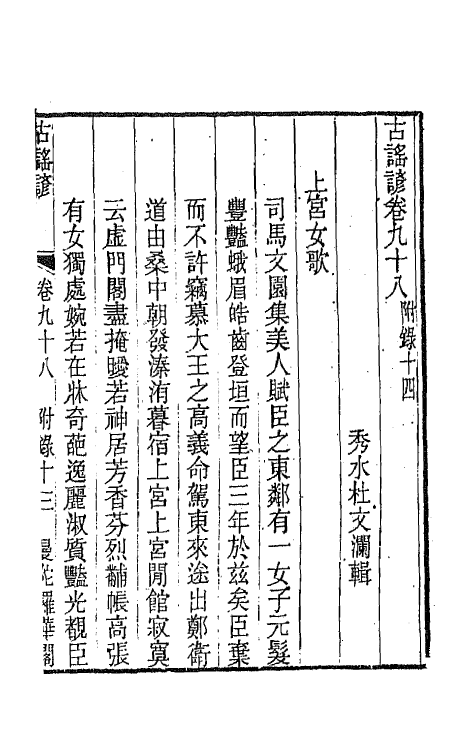 古謠諺卷九十八 附錄十四
秀水杜文瀾輯
上宮女歌
司馬文園集美人賦臣之東鄰有一女子元髮
豐豔蛾眉皓齒登垣而望臣三年於茲矣臣棄
而不許竊慕大王之高義命駕東來途出鄭衛
道由桑中朝發溱洧暮宿上宮上宮閒館寂寞
云虛門閤盡掩曖若神居芳香芬烈黼帳高張
有女獨處婉若在牀奇葩逸麗淑質豔光覩臣
古謠諺 卷九十八 附錄十三 曼陀羅華閣